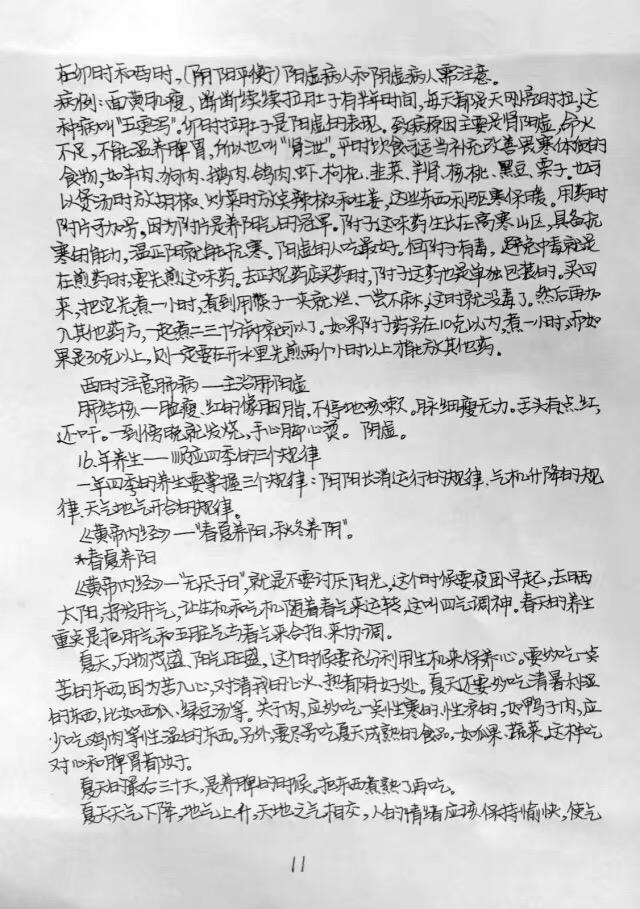 在卯时和酉时,(阴阳平衡)阳虚病人和阴虚病人需注意。
病例:面黄肌瘦,断断续续拉肚子有半年时间,每天都是天刚亮时拉,这
种病叫"五更泻"。卯时拉肚子是阳虚的表现。致病原因主要是肾阳虚,命火
不足,不能温养脾胃,所以也叫"肾泄"。平时饮食可适当补充改善畏寒体质的
食物,如羊肉、狗肉、鹅肉、鸽肉、虾、枸杞、韭菜、羊肾、核桃、黑豆、栗子。也可
以煲汤时放胡椒,炒菜时放点辣椒和生姜,这些东西利驱寒保暖。用药时
附片可加劳。因为附片是养阳气的冠军。附子这味药生长在高寒山区,具备抗
寒的能力,温正阳就能抗寒。阳虚的人吃最好。但附子有毒,避免中毒就是
在煎药时,要先煎这味药。去正规药店买药时,附子这药也是单独包装的。买回
来,把它先煮一小时,煮到用筷子一夹就烂,一尝不麻,这时就没毒了。然后再加
入其他药方,一起煮二三十分钟就可以了。如果附子药另在10克以内,煮一小时,而如
果是30克以上,则一定要在开水里先煎两个小时以上才能放其他药。
酉时注意肺病——主治肺阴虚
肺结核——脸瘦、红的像胭脂,不停地咳嗽。脉细瘦无力。舌头有点红,
还干。一到傍晚就发烧,手心脚心烫。 阴虚。
16.年养生——顺应四季的三个规律
一年四季的养生要掌握三个规律:阴阳长消运行的规律、气机升降的规
律、天气地气开合的规律。
《黄帝内经》—"春夏养阳,秋冬养阴"。
*春夏养阳
《黄帝内经》—"无厌于日",就是不要讨厌阳光,这个时候要夜卧早起,去晒
太阳,抒发肝气,让生机和气机随着春气来运转,这叫四气调神。春天的养生
重点是把肝气和五脏气与春气来合拍、来协调。
夏天,万物茂盛、阳气旺盛,这个时候要充分利用生机来保养心。要多吃一点
苦的东西,因为苦入心,对清我的心火、热都有好处。夏天还要多吃清暑利湿
的东西,比如西瓜、绿豆汤等。关于肉,应多吃一点性寒的、性凉的,如鸭子肉,应
少吃鸡肉等性温的东西。另外,要尽另吃夏天成熟的食品,如水果、蔬菜。这样吃
对心和脾胃都好。
夏天的最后三十天,是养脾的时候。把东西煮熟了再吃。
夏天天气下降,地气上升,天地之气相交,人的情绪应该保持愉快,使气
11